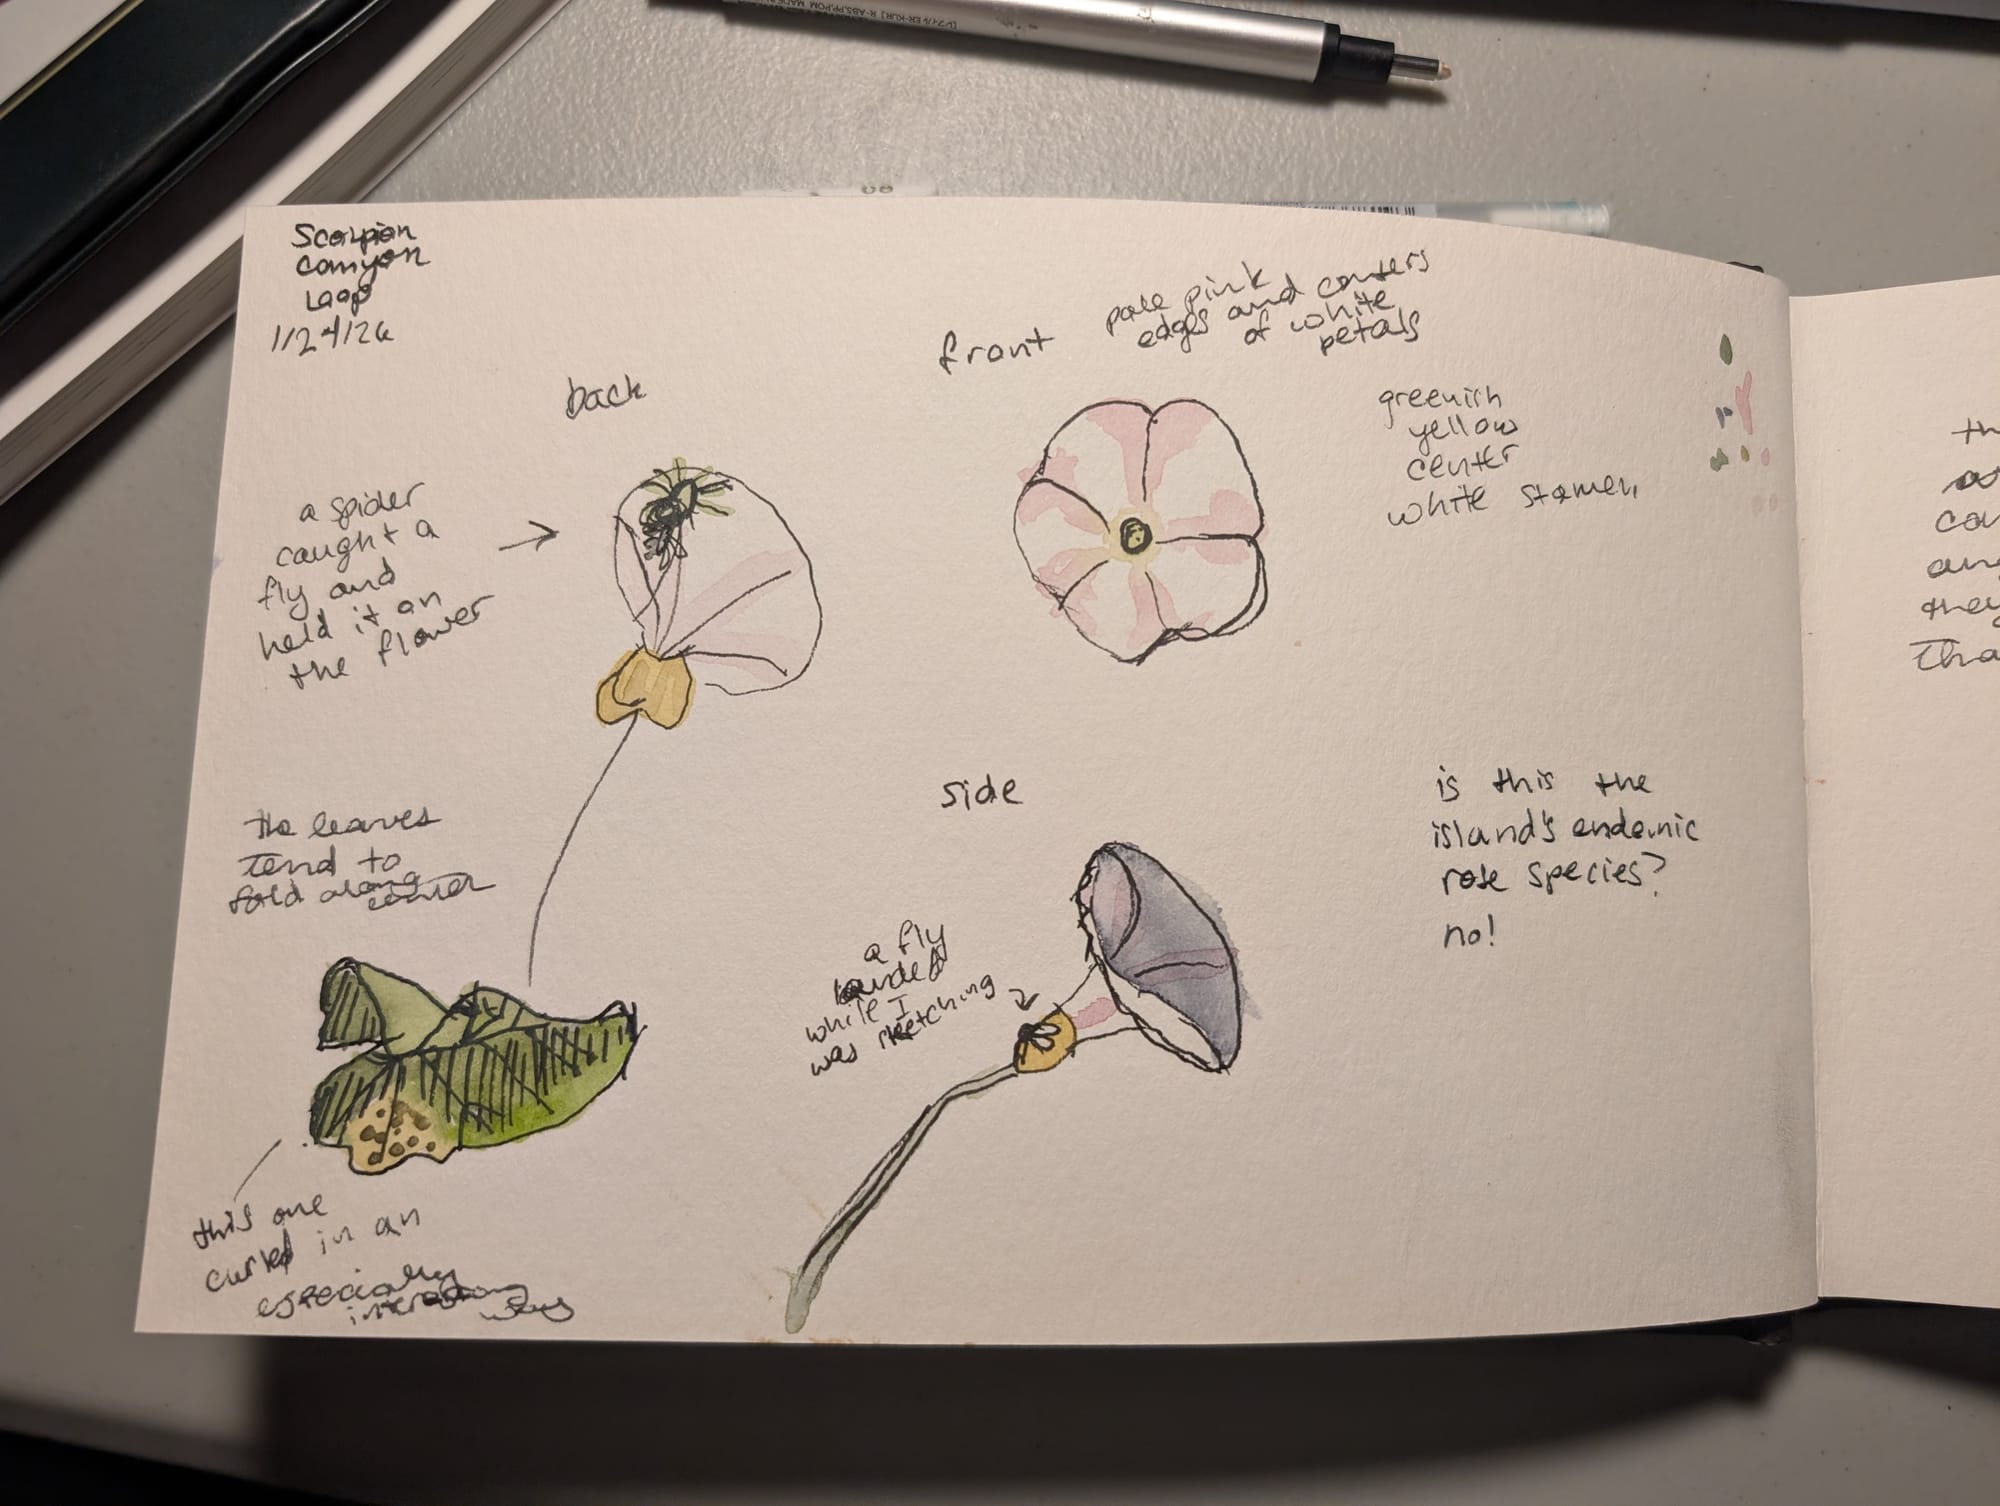 Scorpion
Canyon
Loop
1/24/26
back
front
pale pink
edges and centers
of white
petals
greenish
yellow
center
white stamen
a spider
caught a
fly and
held it on
the flower
the leaves
tend to
fold along
center
side
a fly
landed
while I
was sketching
is this the
island's endemic
rose species?
no!
this one
curled in an
especially
interesting
way
th
co
an
they
Tha